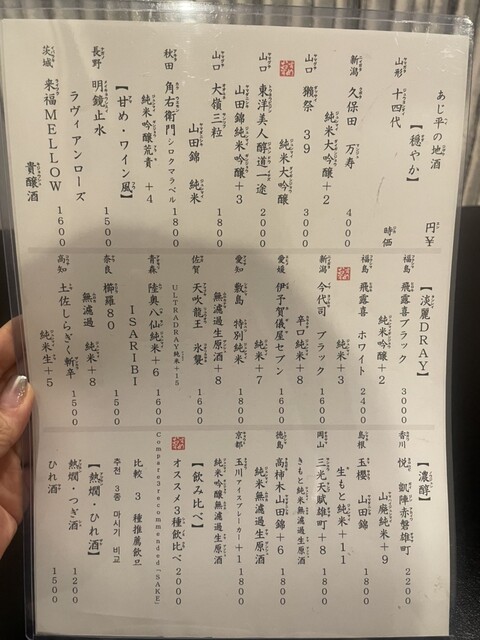 あじ平の地酒
円¥
【穏やか】
山形 十四代 時価
新潟 久保田 万寿
純米大吟醸+2 4000
山口 獺祭 39
純米大吟醸 3000
山口 東洋美人 醇道一途
山田錦純米吟醸+3 2000
山口 大嶺三粒
山田錦 純米 1800
秋田 角右衛門 シロクマラベル
純米吟醸荒責 +4 1800
【甘め・ワイン風】
長野 明鏡止水
ラヴィアンローズ 1500
茨城 来福MELLOW
貴醸酒 1600
【淡麗DRAY】
福島 飛露喜ブラック
純米吟醸+2 3000
福島 飛露喜 ホワイト
純米+3 2400
新潟 今代司 ブラック
辛口純米+8 1600
愛媛 伊予賀儀屋セブン
純米+7 1600
愛知 敷島 特別純米
無濾過生原酒+8 1800
佐賀 天吹龍王 氷襲
ULTRADRAY純米+15 1600
青森 陸奥八仙純米+6
ISARIBI 1600
奈良 櫛羅80
無濾過 純米+8 1500
高知 土佐しらぎく斬辛
純米生+5 1500
【濃醇】
香川 悦 凱陣赤磐雄町
山廃純米+9 2200
島根 玉櫻 山田錦
生もと純米+11 1800
岡山 三光天賦雄町+8
きもと純米無濾過生原酒 1800
徳島 高柿木山田錦+6
純米無濾過生原酒 1800
京都 玉川アイスブレーカー+1
純米吟醸無濾過生原酒 1800
【飲み比べ】
オススメ3種飲比べ 2000
Compare3recommended「SAKE」
比較 3 種推薦飲品
추천 3종 마시기 비교
【熱燗・ひれ酒】
熱燗・つぎ酒 1200
ひれ酒 1500